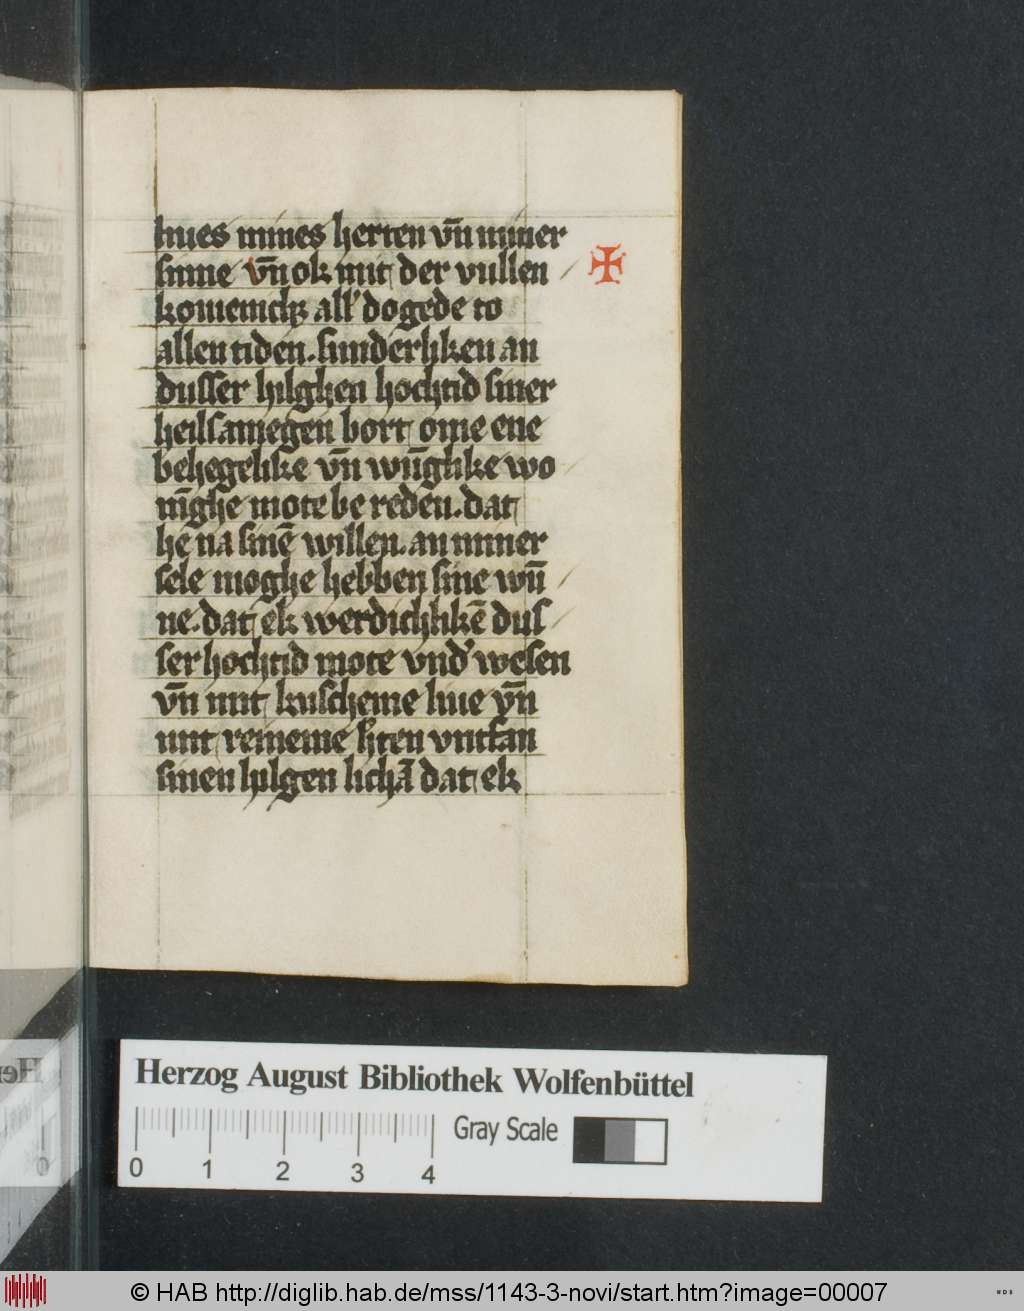 liues mines herten vn̄ miner
sinne vn̄ ok mit der vullen
komenicheit all' dogede to
allen tiden. sunderliken an
dusser hilghen hochtid siner
heilsamegen bort ome ene
behegelike vn̄ wūghlike wo
nīghe mote be reden. dat
he na sinē willen. an miner
sele moghe hebben sine wū
ne. dat ek werdichlikē dus
ser hochtid mote vnd' wesen
vn̄ mit kuscheme liue vn̄
mit reineme h'ten vntfan
sinen hilgen lichā dat ek
Herzog August Bibliothek Wolfenbüttel
Gray Scale
0 1 2 3 4
© HAB http://diglib.hab.de/mss/1143-3-novi/start.htm?image=00007